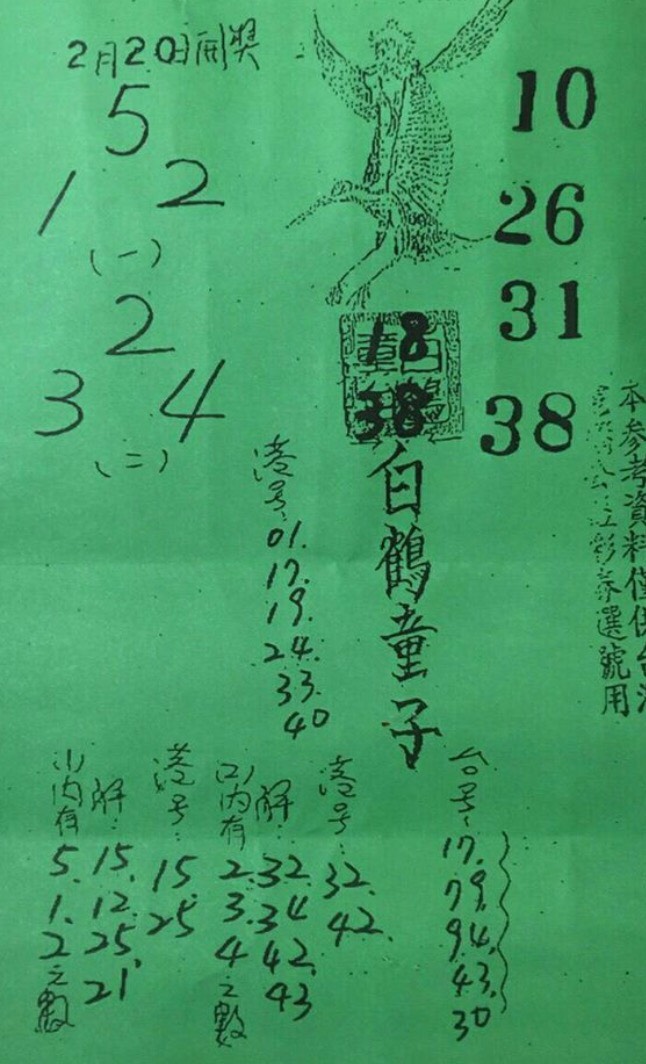 2月20日開獎
5
1 2
(一)
2
3 4
(二)
10
26
31
38
18
38
白鶴童子
本參考資料僅供台
彩券選號用
港号:
01.
17.
19.
24.
33.
40
(一)內有
5.
1.
2之數
解:
15.
12.
25.
21
港号:
15.
25
(二)內有
2.
3.
4之數
解:
32.
34
42.
43
港号:
32.
42.
台号:
17.
79.
94.
43.
30